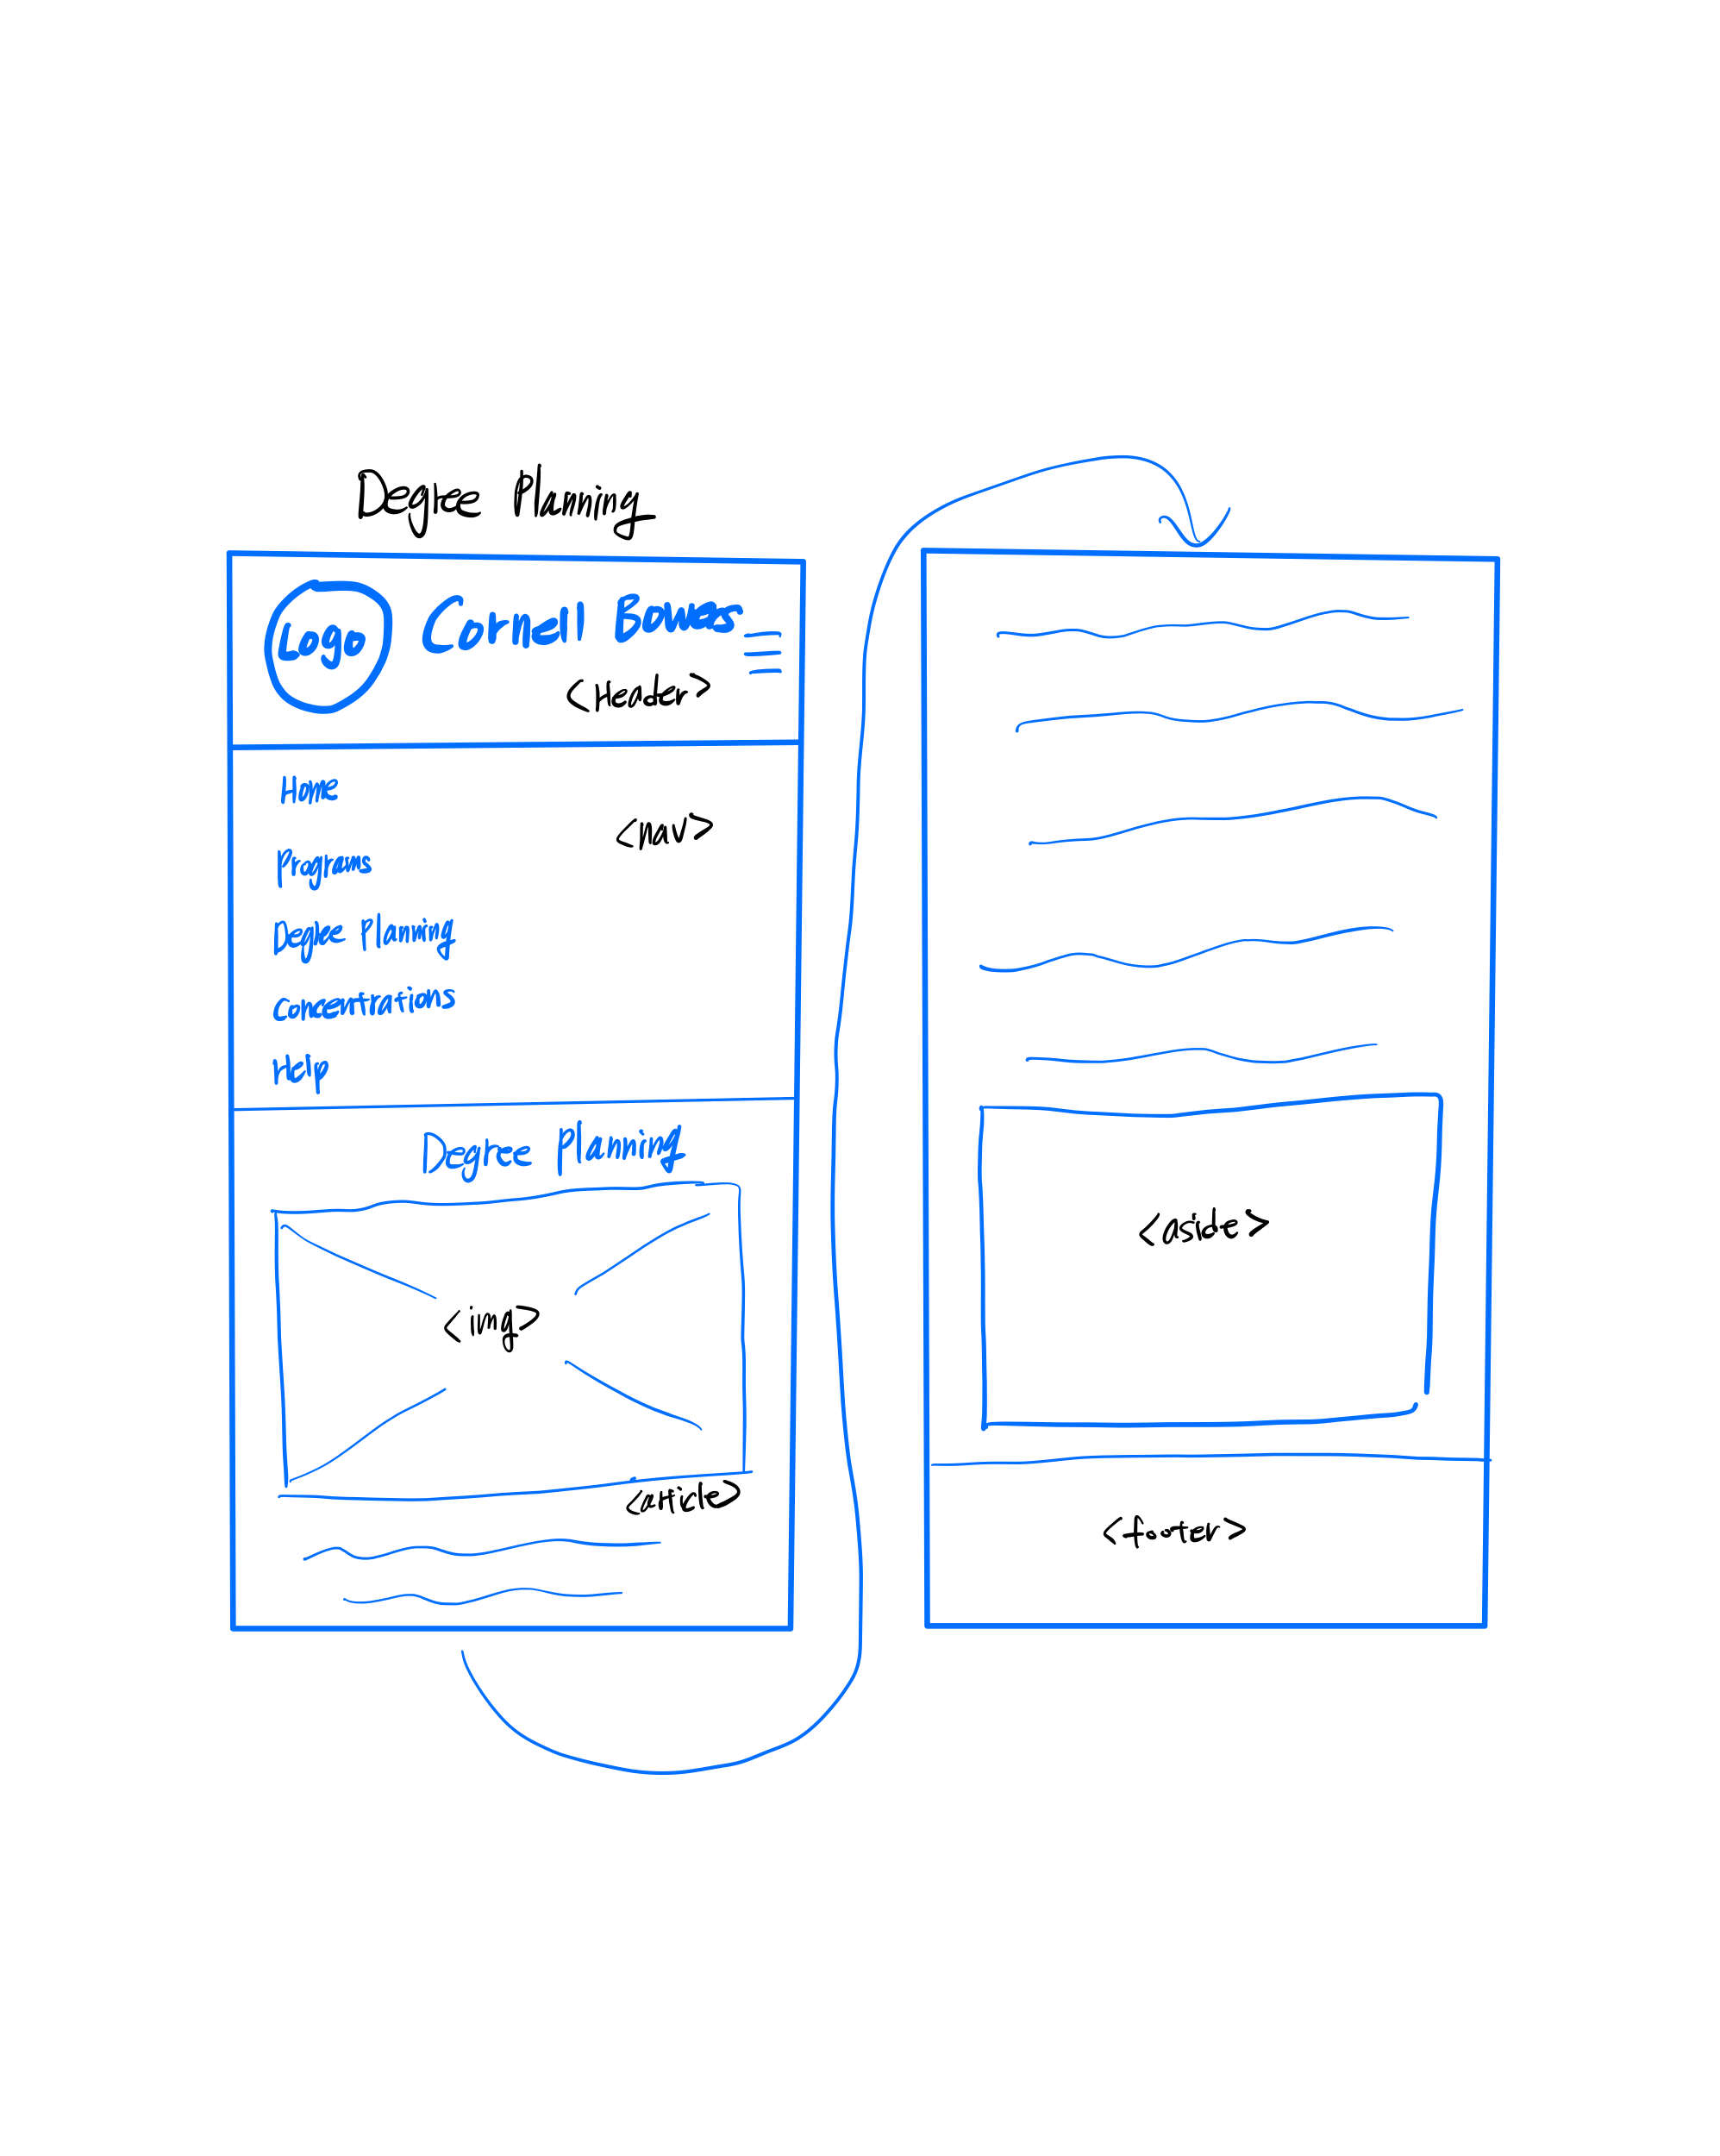 Degree Planning
Logo
Cornell Bowers
<Header>
Home
<nav>
Programs
Degree Planning
Concentrations
Help
Degree Planning
<img>
<article>
<aside>
<footer>